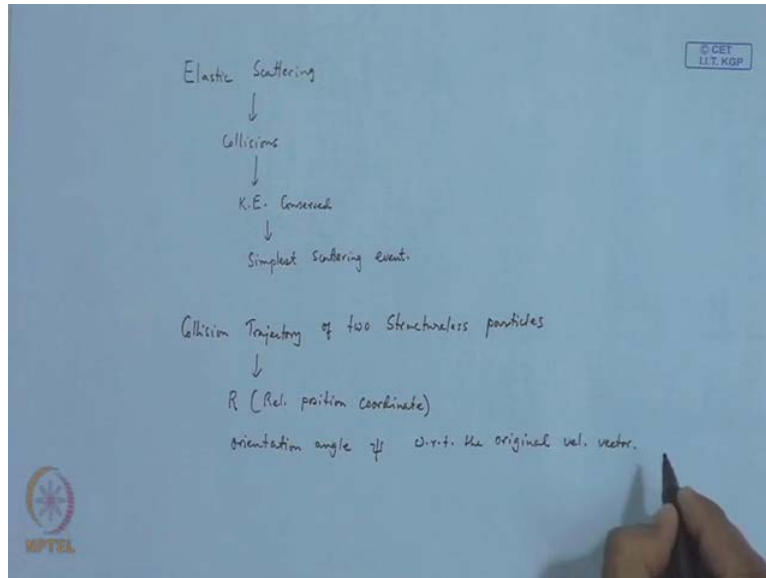 © CET
I.I.T. KGP
Elastic Scattering
Collisions
K.E. Conserved
Simplest Scattering event.
Collision Trajectory of two Structureless particles
R (Rel. position coordinate)
orientation angle ψ w.r.t. the original vel. vector.
NPTEL